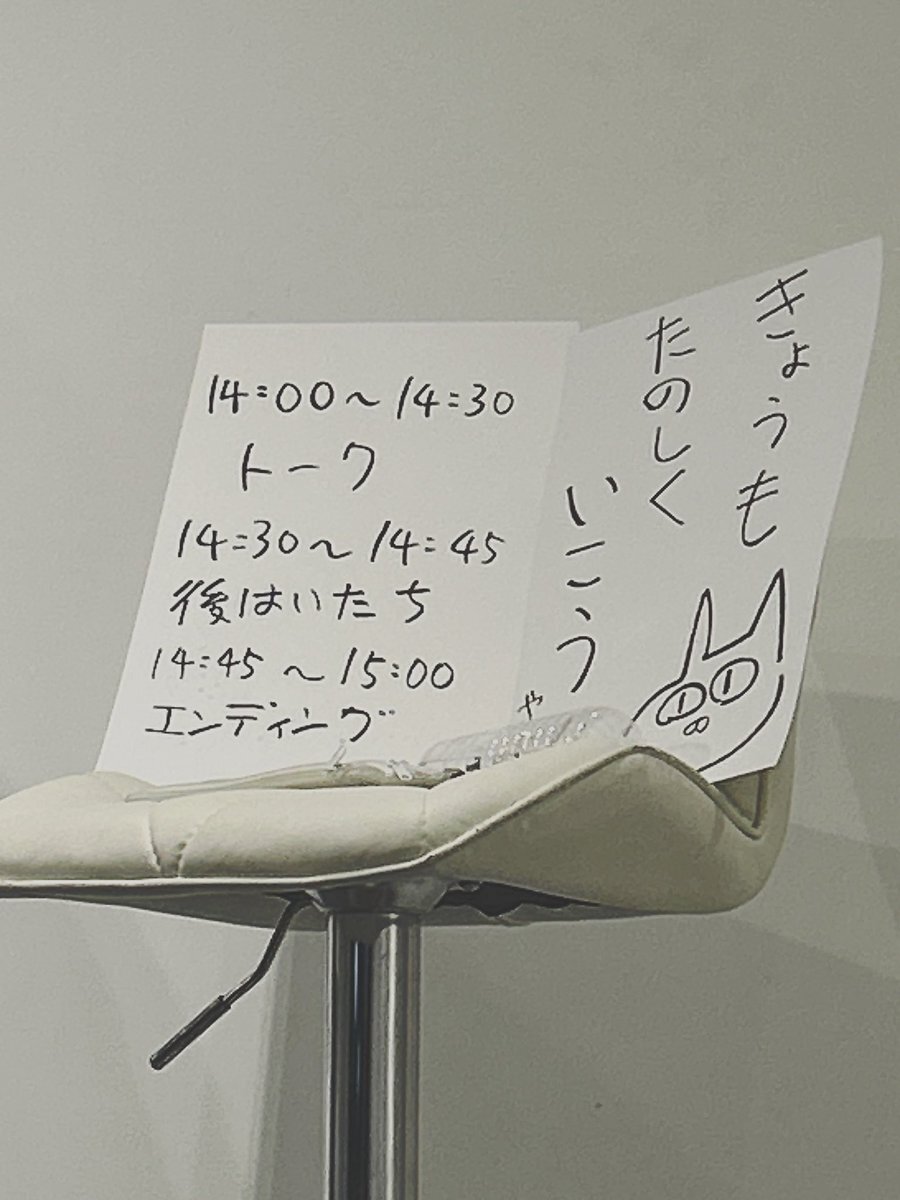 14:00〜14:30
トーク
14:30〜14:45
後はいたち
14:45〜15:00
エンディング
きょうも
たのしく
いこうや